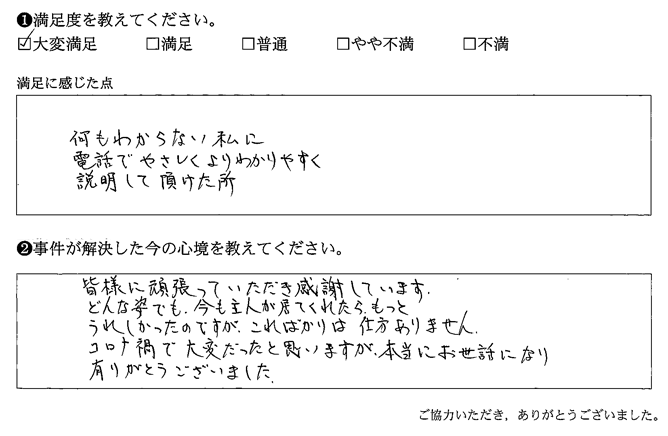 ❶満足度を教えてください。
☑大変満足 □満足 □普通 □やや不満 □不満
満足に感じた点
何もわからない私に
電話でやさしくよりわかりやすく
説明して頂けた所
❷事件が解決した今の心境を教えてください。
皆様に頑張っていただき感謝しています.
どんな姿でも.今も主人が居てくれたら.もっと
うれしかったのですが.こればかりは仕方ありません.
コロナ禍で大変だったと思いますが.本当にお世話になり
有りがとうございました.
ご協力いただき，ありがとうございました。